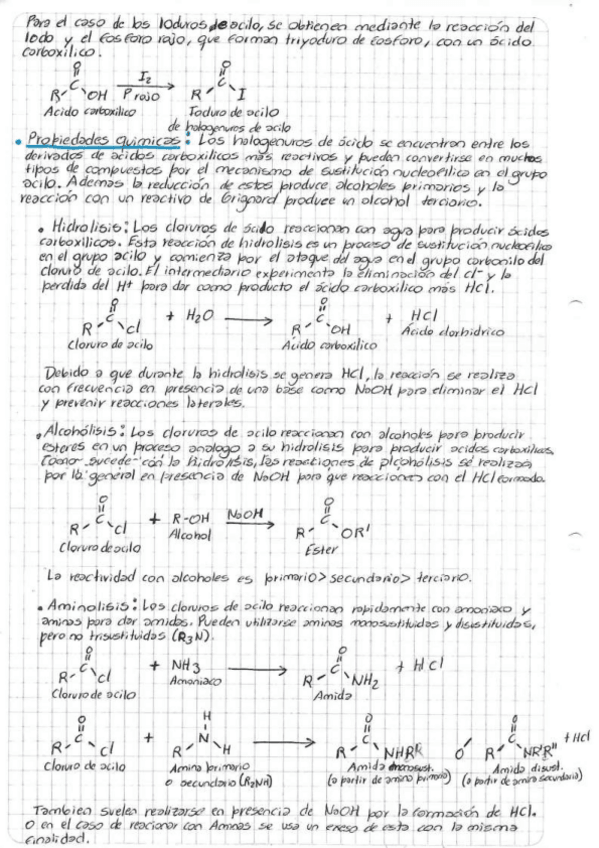 Para el caso de los Ioduros de acilo, se obtienen mediante la reacción del
Iodo y el fosforo rojo, que forman triyoduro de fosforo, con un ácido
carboxílico.
O O
C I2 C
R OH P rojo R I
Acido carboxílico Ioduro de acilo
de halogenuros de acilo
• Propiedades quimicas: Los halogenuros de ácido se encuentran entre los
derivados de ácidos carboxílicos más reactivos y pueden convertirse en muchos
tipos de compuestos por el mecanismo de sustitución nucleofílica en el grupo
acilo. Ademas la reducción de estos produce alcoholes primarios y la
reacción con un reactivo de Grignard produce un alcohol terciario.
• Hidrolisis: Los cloruros de ácido reaccionan con agua para producir ácidos
carboxílicos. Esta reacción de hidrolisis es un proceso de sustitución nucleofílica
en el grupo acilo y comienza por el ataque del agua en el grupo carbonilo del
cloruro de acilo. El intermediario experimenta la eliminación del Cl- y la
perdida del H+ para dar como producto el ácido carboxílico más HCl.
O O
C + H2O C + HCl
R Cl R OH Ácido clorhídrico
Cloruro de acilo Acido carboxílico
Debido a que durante la hidrolisis se genera HCl, la reacción se realiza
con frecuencia en presencia de una base como NaOH para eliminar el HCl
y prevenir reacciones laterales.
• Alcohólisis: Los cloruros de acilo reaccionan con alcoholes para producir
esteres en un proceso analogo a su hidrolisis para producir acidos carboxílicos.
Como sucede con la hidrolisis, las reacciones de alcohólisis se realizan
por lo general en presencia de NaOH para que reacciones con el HCl formado.
O O
C + R-OH NaOH C
R Cl Alcohol R OR'
Cloruro de acilo Ester
La reactividad con alcoholes es primario > secundario > terciario.
• Aminolisis: Los cloruros de acilo reaccionan rapidamente con amoniaco y
aminas para dar amidas. Pueden utilizarse aminas monosustituidas y disustituidas,
pero no trisustituidas (R3N).
O O
C + NH3 C + HCl
R Cl Amoniaco R NH2
Cloruro de acilo Amida
O H O O
C + N C C + HCl
R Cl R H R NHR Ó R NR'R''
Cloruro de acilo Amina primaria Amida monosust. Amida disust.
o secundaria (R2NH) (a partir de amina primaria) (a partir de amina secundaria)
Tambien suelen realizarse en presencia de NaOH por la formación de HCl.
O en el caso de reacionar con Aminas se usa un exeso de esta con la misma
finalidad.